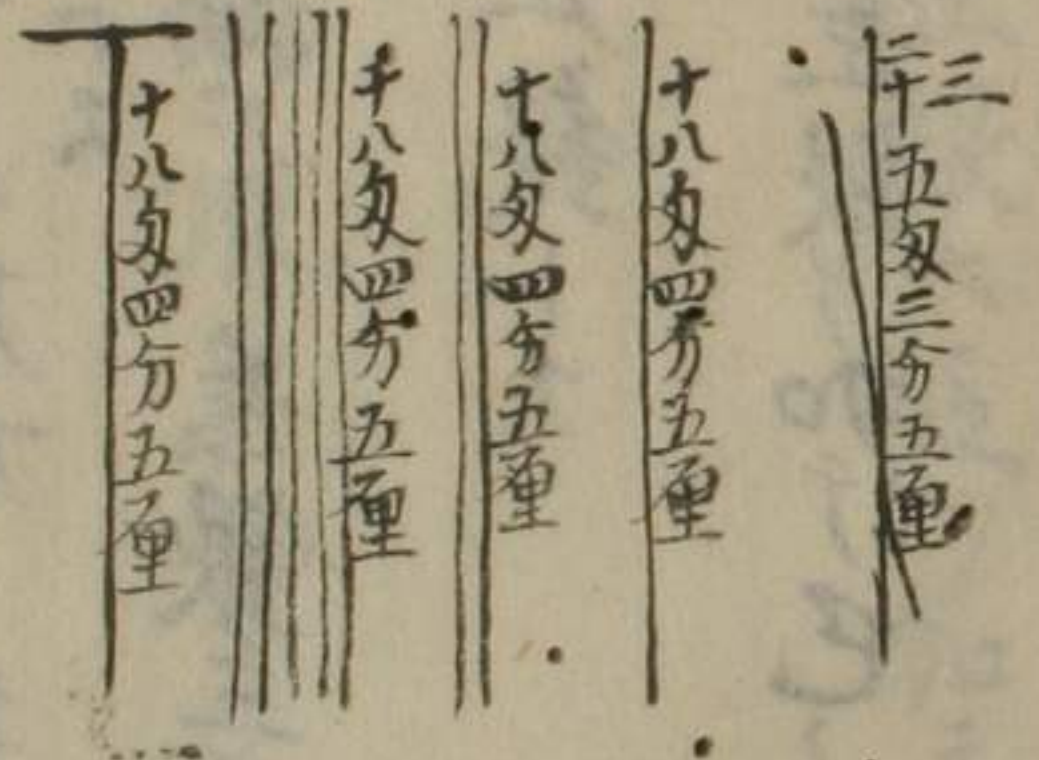 三
二十五匁三分五厘
十八匁四分五厘
十八匁四分五厘
十八匁四分五厘
十八匁四分五厘